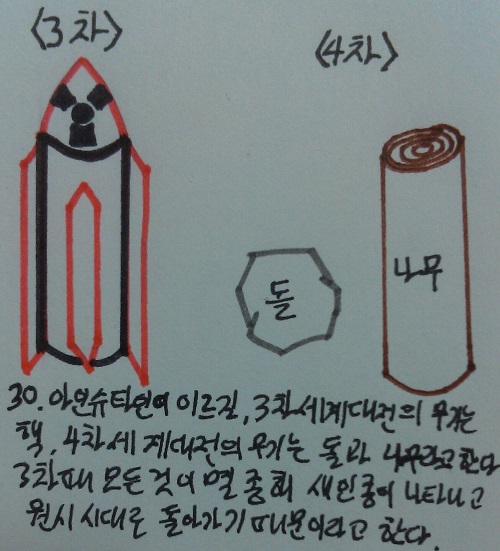 <3차>
<4차>
돌
나무
30. 아인슈타인이 이르길, 3차세계대전의 무기는
핵, 4차세계대전의 무기는 돌과 나무라고한다
3차때 모든 것이 멸종회 새인종이 나타나고
원시시대로 돌아가기 때문이라고 한다.